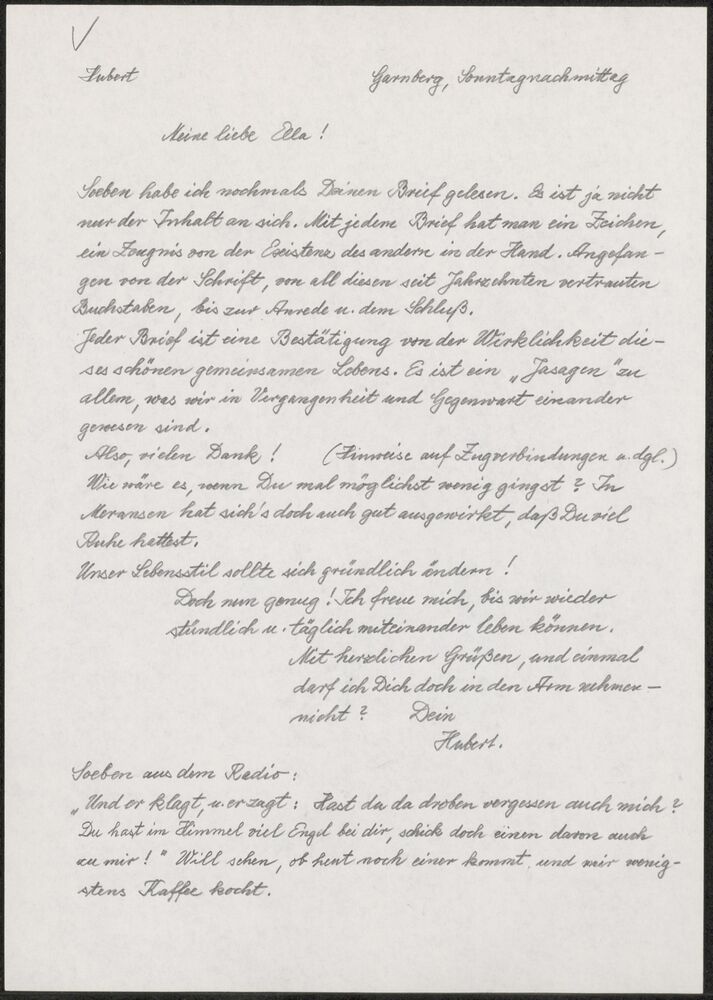 Hubert
Garnberg, Sonntagnachmittag
Meine liebe Ella!
Soeben habe ich nochmals Deinen Brief gelesen. Es ist ja nicht
nur der Inhalt an sich. Mit jedem Brief hat man ein Zeichen,
ein Zeugnis von der Existenz des andern in der Hand. Angefan-
gen von der Schrift, von all diesen seit Jahrzehnten vertrauten
Buchstaben, bis zur Anrede u. dem Schluß.
Jeder Brief ist eine Bestätigung von der Wirklichkeit die-
ses schönen gemeinsamen Lebens. Es ist ein „Jasagen" zu
allem, was wir in Vergangenheit und Gegenwart einander
gewesen sind.
Also, vielen Dank! (Hinweise auf Zugverbindungen u. dgl.)
Wie wäre es, wenn Du mal möglichst wenig gingst? In
Meransen hat sich's doch auch gut ausgewirkt, daß Du viel
Ruhe hattest.
Unser Lebensstil sollte sich gründlich ändern!
Doch nun genug! Ich freue mich, bis wir wieder
stündlich u. täglich miteinander leben können.
Mit herzlichen Grüßen, und einmal
darf ich Dich doch in den Arm nehmen –
nicht? Dein
Hubert.
Soeben aus dem Radio:
„Und er klagt, u. er zagt: Hast du da droben vergessen auch mich?
Du hast im Himmel viel Engel bei dir, schick doch einen davon auch
zu mir!" Will sehen, ob heut noch einer kommt, und mir wenig-
stens Kaffee kocht.